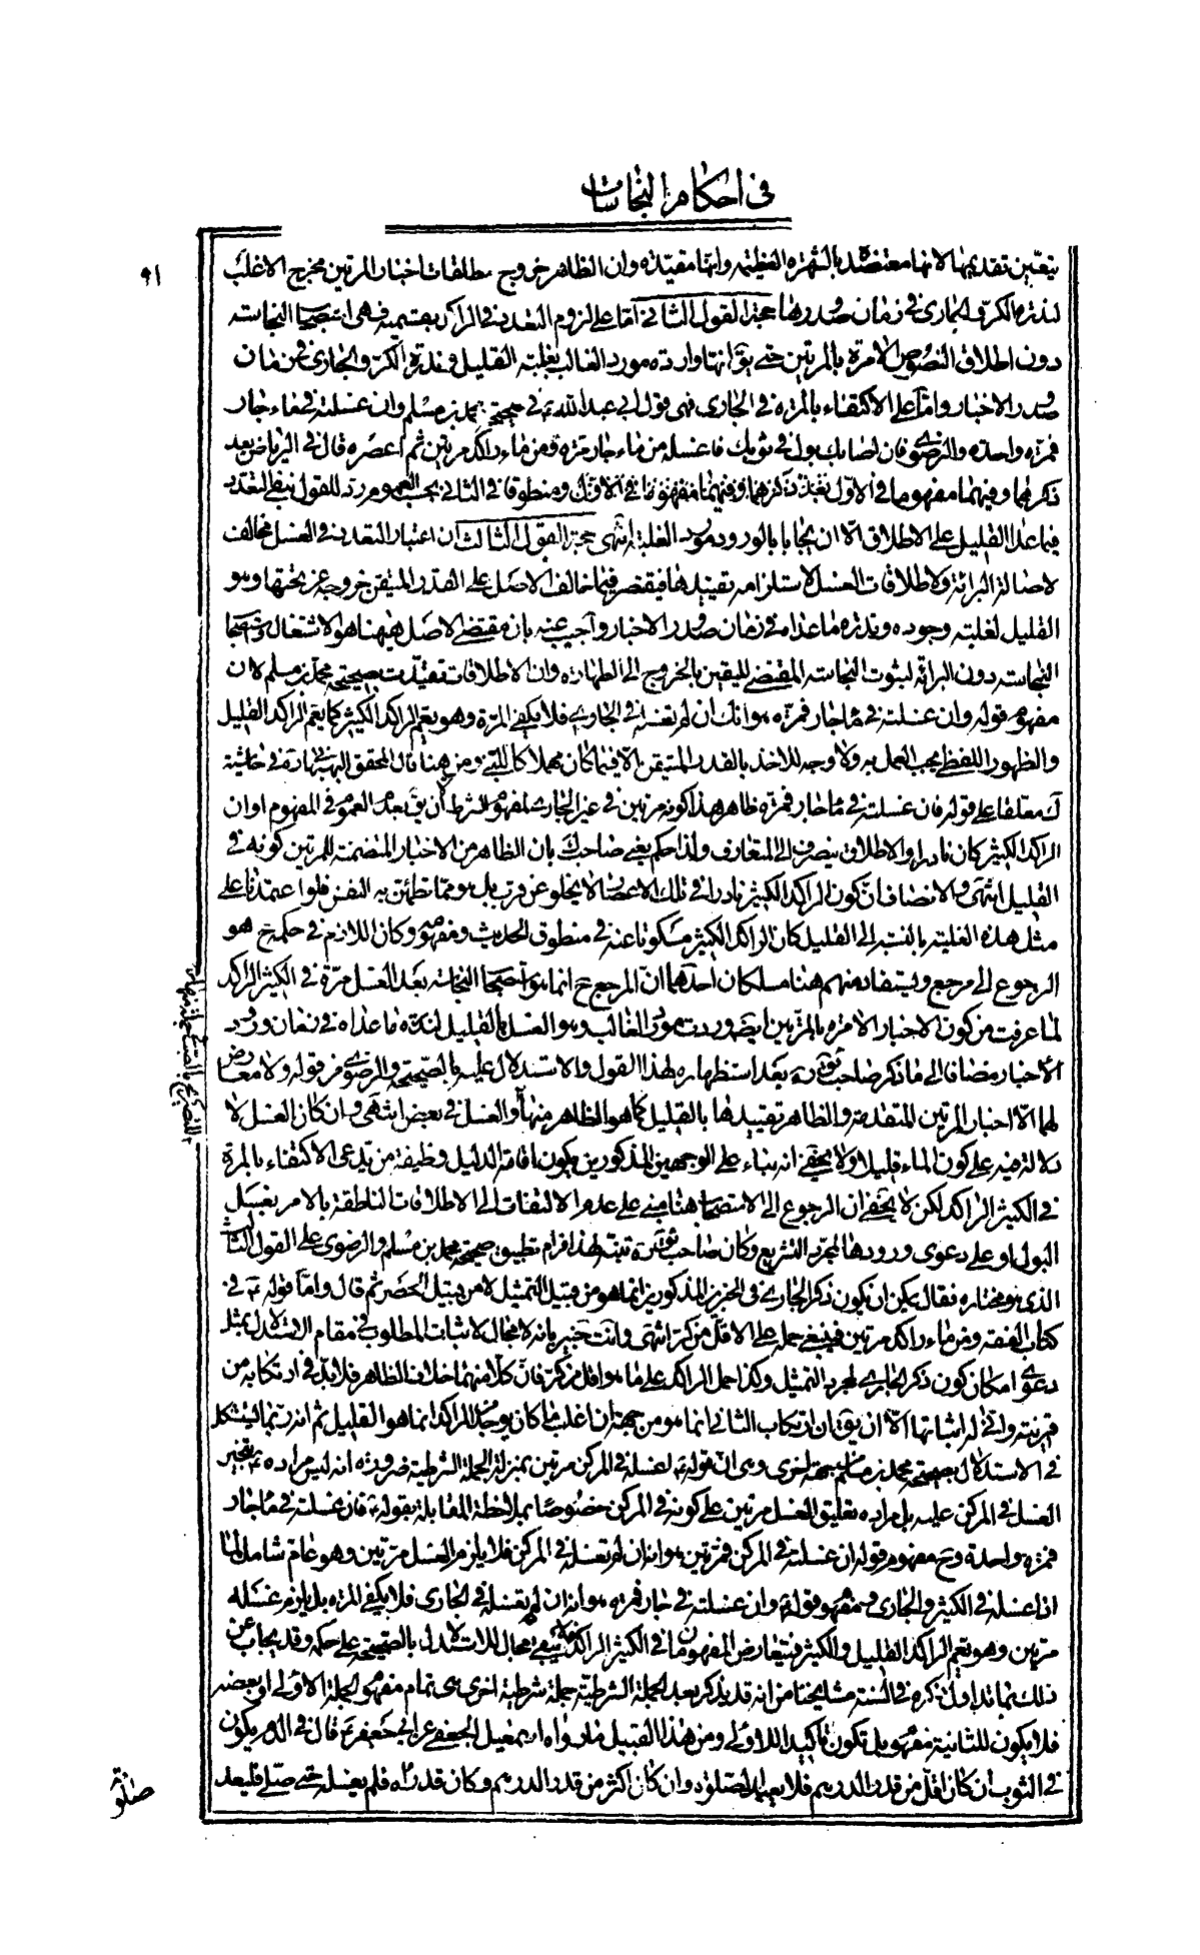 في احكام النجاسات
٩١
يتعين تقديمها لانها معتضدة بالشهرة العظيمة وانها مقيدة وان الظاهر خروج مطلقات اخبار المرتين مخرج الاغلب
لندرة الكر والجارى في زمان صدورها حجة القول الثاني اما على لزوم التعدد في الراكد بقسميه فهى استصحاب النجاسة
دون اطلاق النصوص الامرة بالمرتين حتى يق انها واردة مورد الغالب بغلبة القليل وندرة الكر والجارى في زمان
صدور الاخبار واما على الاكتفاء بالمرة في الجارى فهى قول ابي عبد الله ع في صحيحة محمد بن مسلم وان غسلته في ماء جار
فمرة واحدة والرضوى فان اصابك بول في ثوبك فاغسله من ماء جار مرة ومن ماء راكد مرتين ثم اعصره قال في الرياض بعد
ذكرهما وفيهما مفهوما في الاول بعد ذكرهما وفيهما مفهوما في الاول ومنطوقا في الثاني بحسب العموم رد للقول بنفى التعدد
فيما عدا القليل على الاطلاق الا ان يجابا بالورود مورد الغلبة انتهى حجة القول الثالث ان اعتبار التعدد في الغسل مخالف
لاصالة البرائة ولاطلاقات الغسل لاستلزامه تقييدها فيقتصر فيما خالف الاصل على القدر المتيقن خروجه عن تحتها وهو
القليل لغلبة وجوده وندرة ما عداه في زمان صدور الاخبار واجيب عنه بان مقتضى الاصل هيهنا هو الاشتغال واستصحاب
النجاسة دون البرائة لثبوت النجاسة المقتضى لليقين بالخروج الى الطهارة وان الاطلاقات تقيدت بصحيحة محمد بن مسلم لان
مفهوم قوله وان غسلته في ماء جار فمرة هو انك ان لم تغسله في الجارى فلا يكفى المرة وهو يعم الراكد الكثير كما يعم الراكد القليل
والظهور اللفظى يجب العمل به ولا وجه للاخذ بالقدر المتيقن الا فيما كان مجملا كاللبى ومن هنا قال المحقق البهبهانى ره في حاشية
ك معلقا على قوله فان غسلته في ماء جار فمرة ظاهر هذا كونه مرتين في غير الجارى لمفهوم الشرط الا ان يق بعدم العموم في المفهوم او ان
الراكد الكثير كان نادرا والاطلاق ينصرف الى المتعارف ولذا حكم يعنى صاحب ك بان الظاهر من الاخبار المتضمنة للمرتين كونه في
القليل انتهى والانصاف ان كون الراكد الكثير نادرا في تلك الاعصار لا يخلو عن قرب بل هو مما تطمئن به النفس فلو اعتمدنا على
مثل هذه الغلبة بالنسبة الى القليل كان الراكد الكثير مسكوتا عنه في منطوق الحديث ومفهومه وكان اللازم في حكمه ح هو
الرجوع الى مرجع ويستفاد منهم هنا مسلكان احدهما ان المرجع ح انما هو استصحاب النجاسة بعد الغسل مرة في الكثير الراكد
لما عرفت من كون الاخبار الامرة بالمرتين ايض وردت مورد الغالب وهو الغسل بالقليل لندرة ما عداه في زمان ورود
الاخبار مضافا الى ما ذكر صاحب بعد استظهاره لهذا القول والاستدلال عليه بالصحيحة والرضوى من قوله ولا معارض
لهما الا اخبار المرتين المتقدمة والظاهر تقييدها بالقليل كما هو الظاهر منها والغسل في بعض انتهى وان كان الغسل لا
دلالة فيه على كون الماء قليلا ولا يخفى انه بناء على الوجهين المذكورين يكون اقامة الدليل وظيفة من يدعى الاكتفاء بالمرة
في الكثير الراكد لكن لا يخفى ان الرجوع الى الاستصحاب هنا مبنى على عدم الالتفات الى الاطلاقات الناطقة بالامر بغسل
البول او على دعوى ورودها لمجرد التشريع وكان صاحب تنبه لهذا فرام تطبيق صحيحة محمد بن مسلم والرضوى على القول الثالث
الذى هو مختاره فقال يمكن ان يكون ذكر الجارى في الخبرين المذكورين انما هو من قبيل التمثيل لا من قبيل الحصر ثم قال واما قوله ع في
كتاب الفقه ومن ماء راكد مرتين فينبغى حمله على الاقل من كر انتهى وانت خبير بانه لا مجال لاثبات المطلوب في مقام الاستدلال بمثل
دعوى امكان كون ذكر الجارى لمجرد التمثيل وكذا حمل الراكد على ما هو اقل من كر فان كلا منهما خلاف الظاهر فلا بد في ارتكابه من
قرينة وانى له باثباتها الا ان يق ان ارتكاب الثاني انما هو من جهة ان اغلب ما كان يوجد للراكد انما هو القليل ثم انه ربما يستشكل
في الاستدلال بصحيحة محمد بن مسلم من جهة اخرى وهى ان قوله ع اغسله في المركن مرتين بمنزلة الجملة الشرطية ضرورة انه ليس مراده ع تحتم
الغسل في المركن عليه بل مراده تعليق الغسل مرتين على كونه في المركن خصوصا بملاحظة المقابلة بقوله ع فان غسلته في ماء جار
فمرة واحدة وح مفهوم قوله ان غسلته في المركن فمرتين هو انه ان لم تغسله في المركن فلا يلزم الغسل مرتين وهو عام شامل لما
اذا غسله في الكثير والجارى ومفهوم قوله ع وان غسلته في جار فمرة هو انه ان لم تغسله في الجارى فلا يكفى المرة بل يلزم غسله
مرتين وهو يعم الراكد القليل والكثير فيتعارض المفهومان في الكثير الراكد فلا يبقى مجال للاستدلال بالصحيحة على حكمه وقد يجاب عن
ذلك بما تداول ذكره في السنة مشايخنا من انه قد يذكر بعد الجملة الشرطية جملة شرطية اخرى هى تمام مفهوم الجملة الاولى او بعضه
فلا يكون للثانية مفهوم بل تكون تاكيدا للاولى ومن هذا القبيل ما رواه اسمعيل الجعفى عن ابي جعفر ع قال في الدم يكون
في الثوب ان كان اقل من قدر الدرهم فلا يعيد الصلوة وان كان اكثر من قدر الدرهم وكان قد راه فلم يغسله حتى صلى فليعد
صلوته